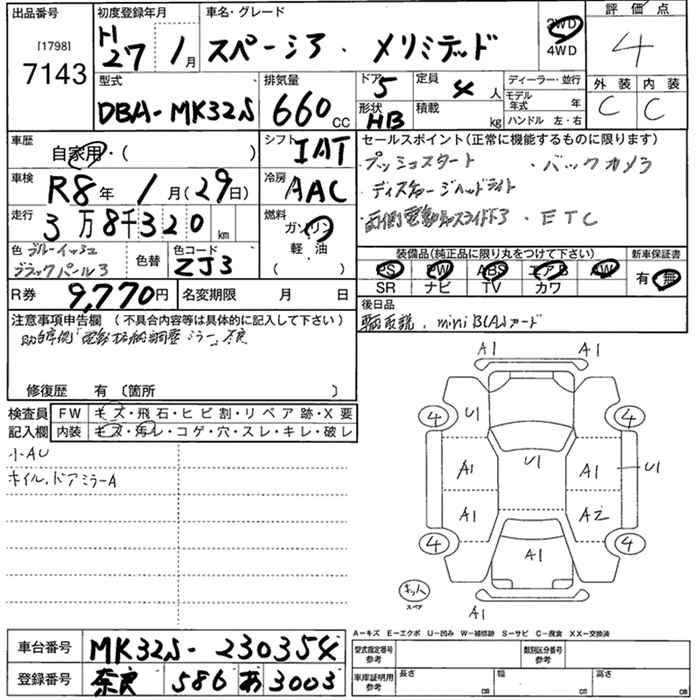 出品番号 [1798] 7143
初度登録年月 H27年 1月
車名・グレード スペーシア・Xリミテッド
2WD 4WD
評価点 4
型式 DBA-MK32S
排気量 660cc
ドア 5
形状 HB
定員 4人
積載 kg
ディーラー・並行
モデル年式 年
ハンドル 左・右
外装 C
内装 C
車歴 自家用・( )
シフト IAT
車検 R8年 1月(29日)
冷房 AAC
走行 3万8千320km
燃料 ガソリン 軽・油 ( )
色 ブルーイッシュブラックパール3
色替
色コード ZJ3
R券 9,770円
名変期限 月 日
セールスポイント(正常に機能するものに限ります)
プッシュスタート ・バックカメラ
ディスチャージヘッドライト
両側電動スライドドア・ETC
装備品(純正品に限り丸をつけて下さい)
新車保証書
PS PW ABS エアB AW 有・無
SR ナビ TV カワ
後日品
取説、miniB(A)カード
注意事項申告欄 (不具合内容等は具体的に記入して下さい)
助手席側「電動格納調整ミラー」不良
修復歴 有〔箇所 〕
検査員記入欄
FW キズ・飛石・ヒビ割・リペア跡・X要
内装 キズ・汚レ・コゲ・穴・スレ・キレ・破レ
小AU
ホイル、ドアミラーA
A1 A1
4 U1 4
A1 U1 A1 U1
A1 A2
4 A1 4
スペア
A1
A-キズ E-エクボ U-凹み W-補修跡 S-サビ C-腐食 XX-交換済
車台番号 MK32S-230354
登録番号 奈良 586 あ 3003
型式指定番号 参考
類別区分番号 参考
車庫証明用 参考
長さ cm 幅 cm 高さ cm